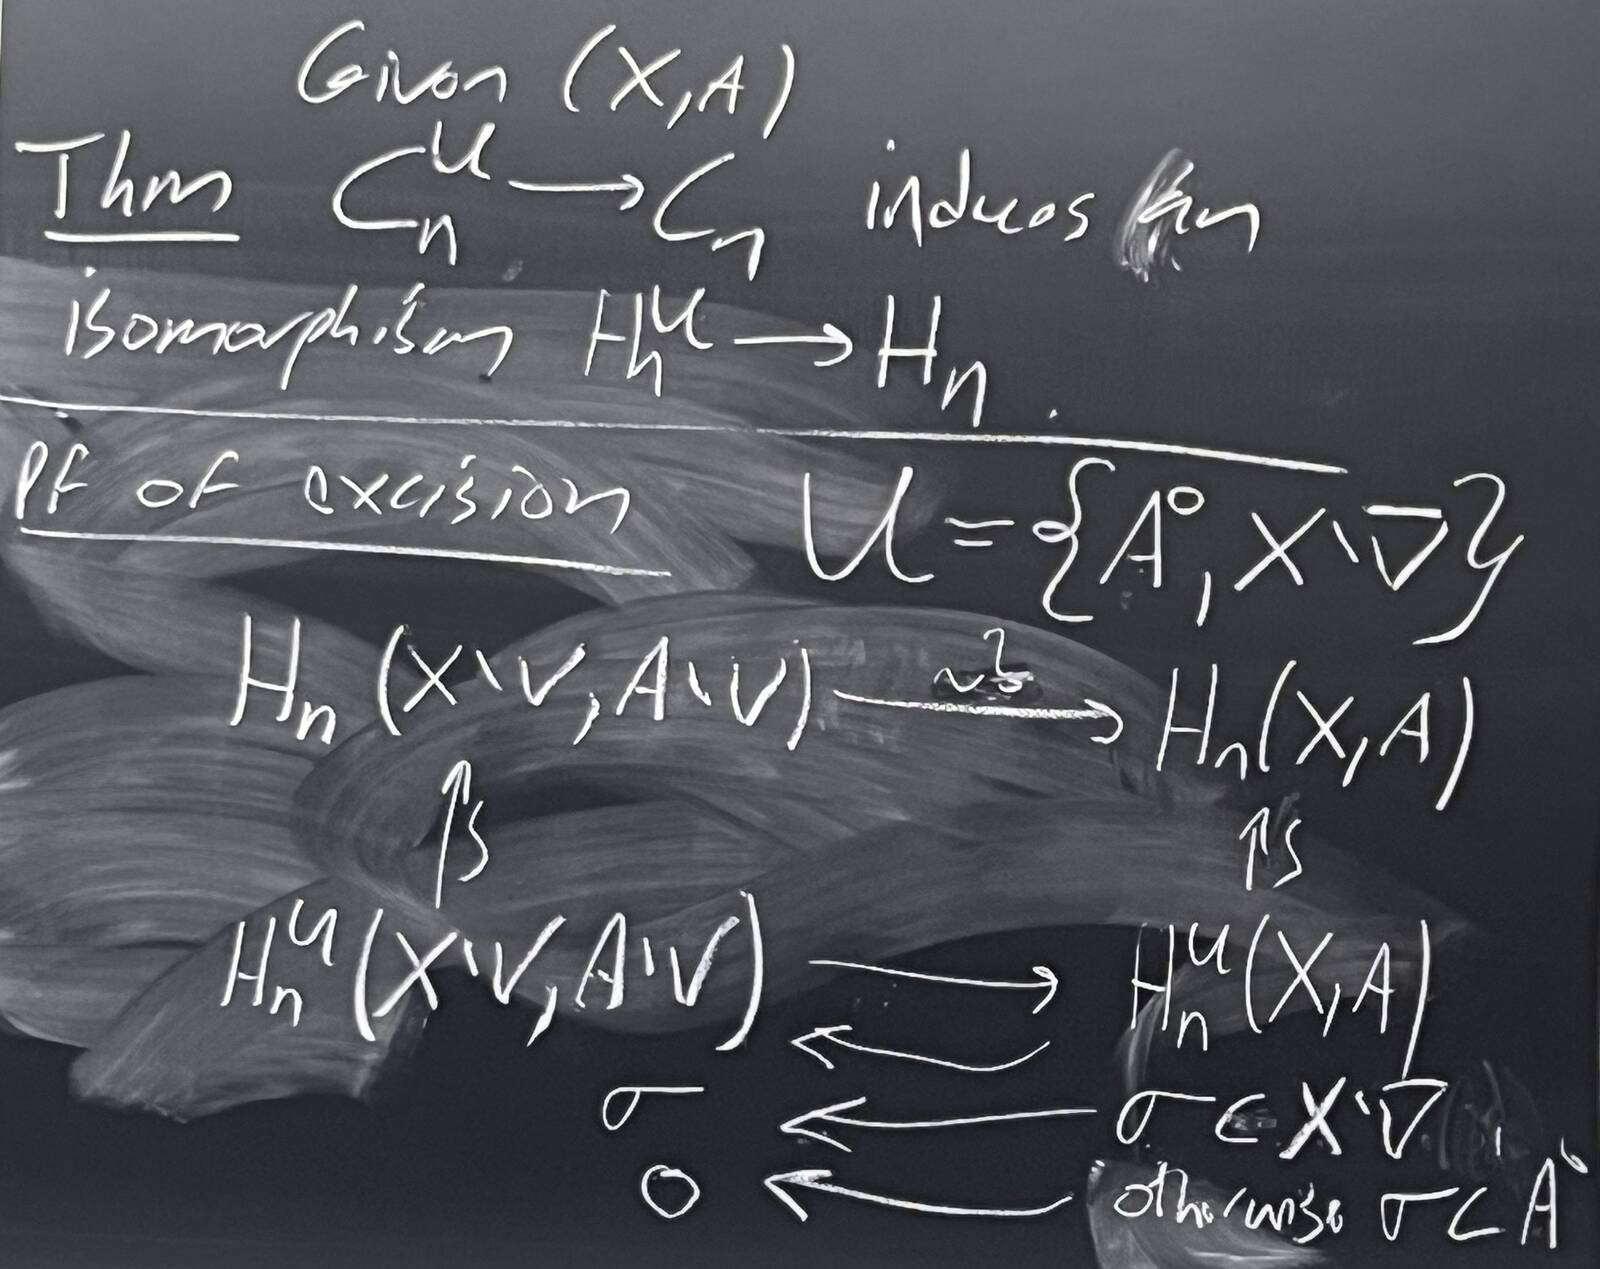 Given (X,A)
Thm C_n^𝒰 → C_n induces an
isomorphism H_n^𝒰 → H_n.
Pf of excision 𝒰 = {A°, X∖V̅}
H_n(X∖V, A∖V) →^{~?} H_n(X,A)
↑≀ ↑≀
H_n^𝒰(X∖V, A∖V) → H_n^𝒰(X,A)
←
σ ← σ ⊂ X∖V̅,
0 ← otherwise σ ⊂ A°